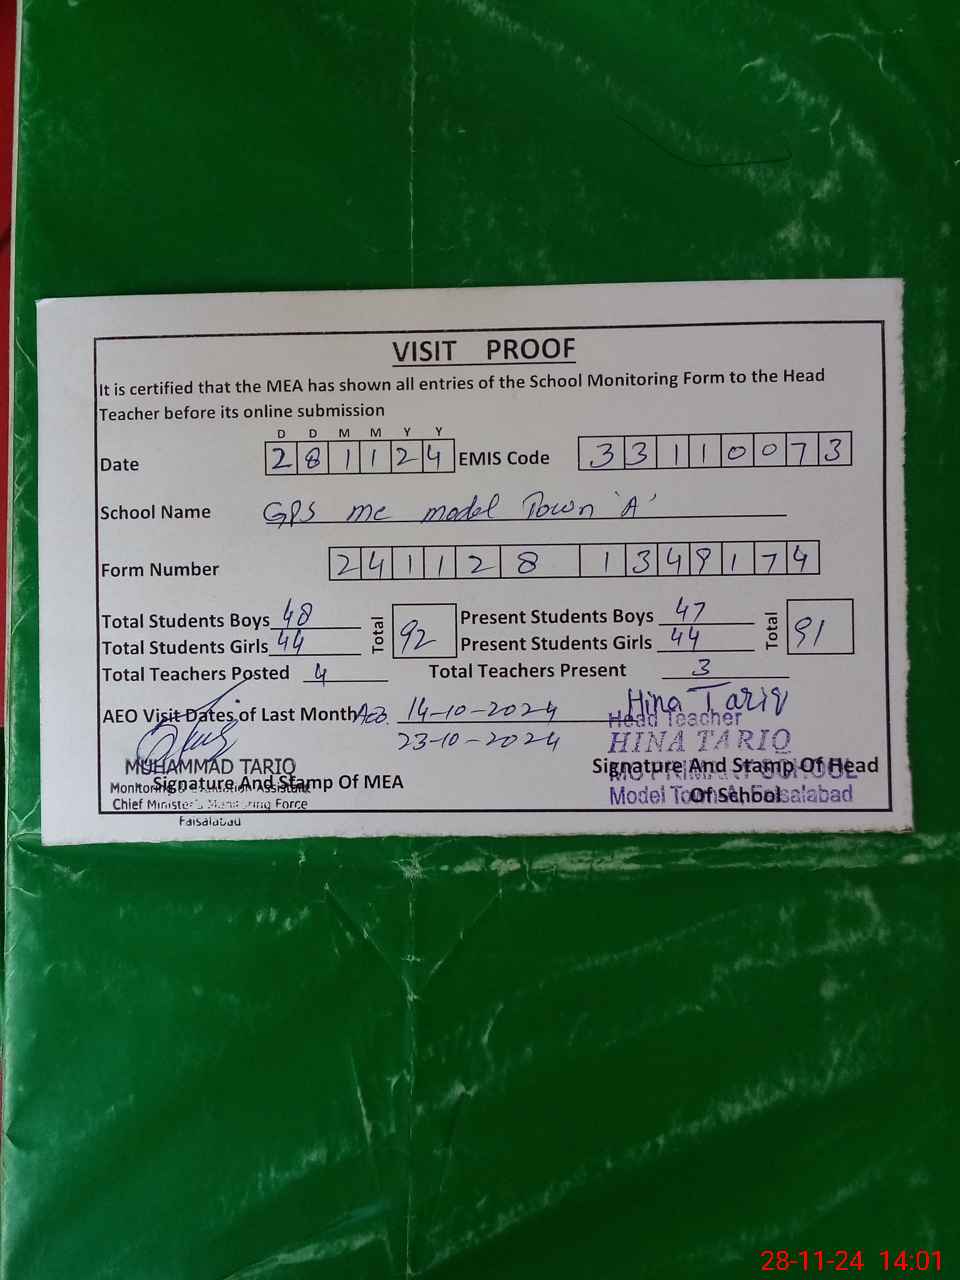 VISIT PROOF
It is certified that the MEA has shown all entries of the School Monitoring Form to the Head
Teacher before its online submission
D D M M Y Y
Date 2 8 1 1 2 4 EMIS Code 3 3 1 1 0 0 7 3
School Name GPS mc model Town 'A'
Form Number 2 4 1 1 2 8 1 3 4 9 1 7 4
Total Students Boys 48 Total 92 Present Students Boys 47 Total 91
Total Students Girls 44 Present Students Girls 44
Total Teachers Posted 4 Total Teachers Present 3
AEO Visit Dates of Last Month 14-10-2024 Hina Tariq
23-10-2024
Head Teacher
HINA TARIQ
MUHAMMAD TARIQ
Signature And Stamp Of MEA Signature And Stamp Of Head
Of School
Monitoring & Evaluation Assistant
MC PRIMARY SCHOOL
Chief Minister's Monitoring Force
Model Town A Faisalabad
Faisalabad
28-11-24 14:01